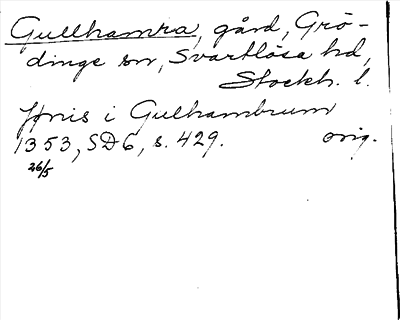 Gullhamra, gård, Grö-
dinge sn, Svartlösa hd,
Stockh. l.
Jfnis i Gulhambrum
1353, SD6, s. 429. orig.
26/5